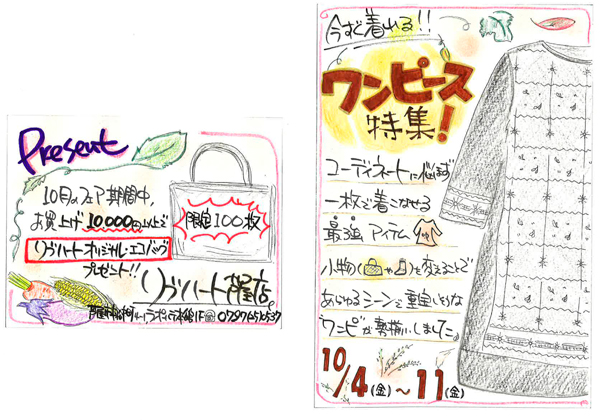 Present
10月のフェア期間中、
お買上げ10,000円以上で
リヴハートオリジナル・エコバッグ
プレゼント!!
限定100枚
リヴハート
今すぐ着れる!!
ワンピース
特集!
コーディネートに悩まず
一枚で着こなせる
最強アイテム
小物(や)を変えることで
あらゆるシーンで重宝しそうな
ワンピが勢揃いしました。
10/4(金)〜11(金)